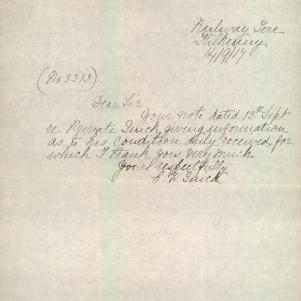 Railway Tere
Kilkenny
14/9/17
(No 3313)
Dear Sir
Your note dated 13th Sept
re Private Quick, giving information
as to his condition duly received, for
which I thank you very much
Yours respectfully
C. W. Quick